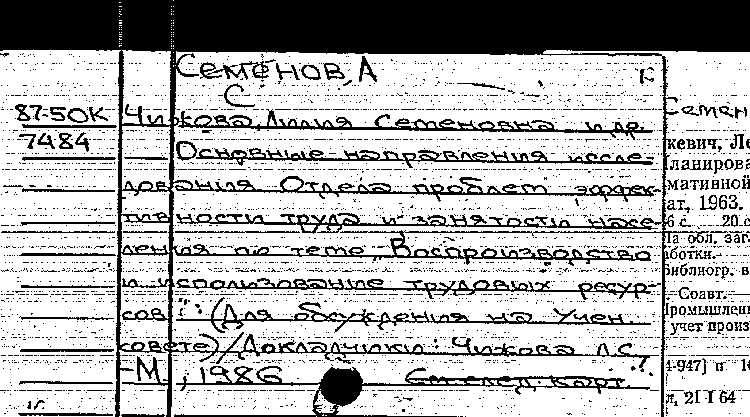 Семенов, А
С
87-50К Чижова, Лилия Семеновна и др.
7484 Основные направления иссле-
дования Отдела проблем эффек-
тивности труда и занятости насе-
ления по теме „Воспроизводство
и использование трудовых ресур-
сов": (Для обсуждения на Учен.
совете) / Докладчики: Чижова Л.С.
-М., 1986 См. след. карт.
Семен
кевич, Ле
ланирова
мативной
ат, 1963.
6 с. 20 с
На обл. заг.
ботки.
Библиогр. в
Соавт.
Промышлен
учет произ
4-947] п 1
т, 21 I 64